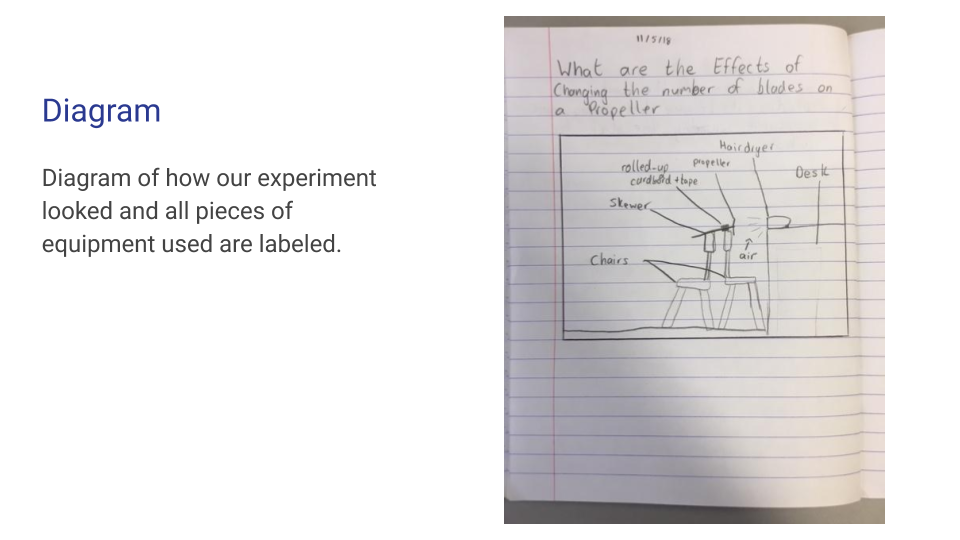 Diagram
Diagram of how our experiment
looked and all pieces of
equipment used are labeled.
11/5/18
What are the Effects of
Changing the number of blades on
a Propeller
Hairdryer
rolled-up
cardboard + tape
propeller
Desk
Skewer
air
Chairs